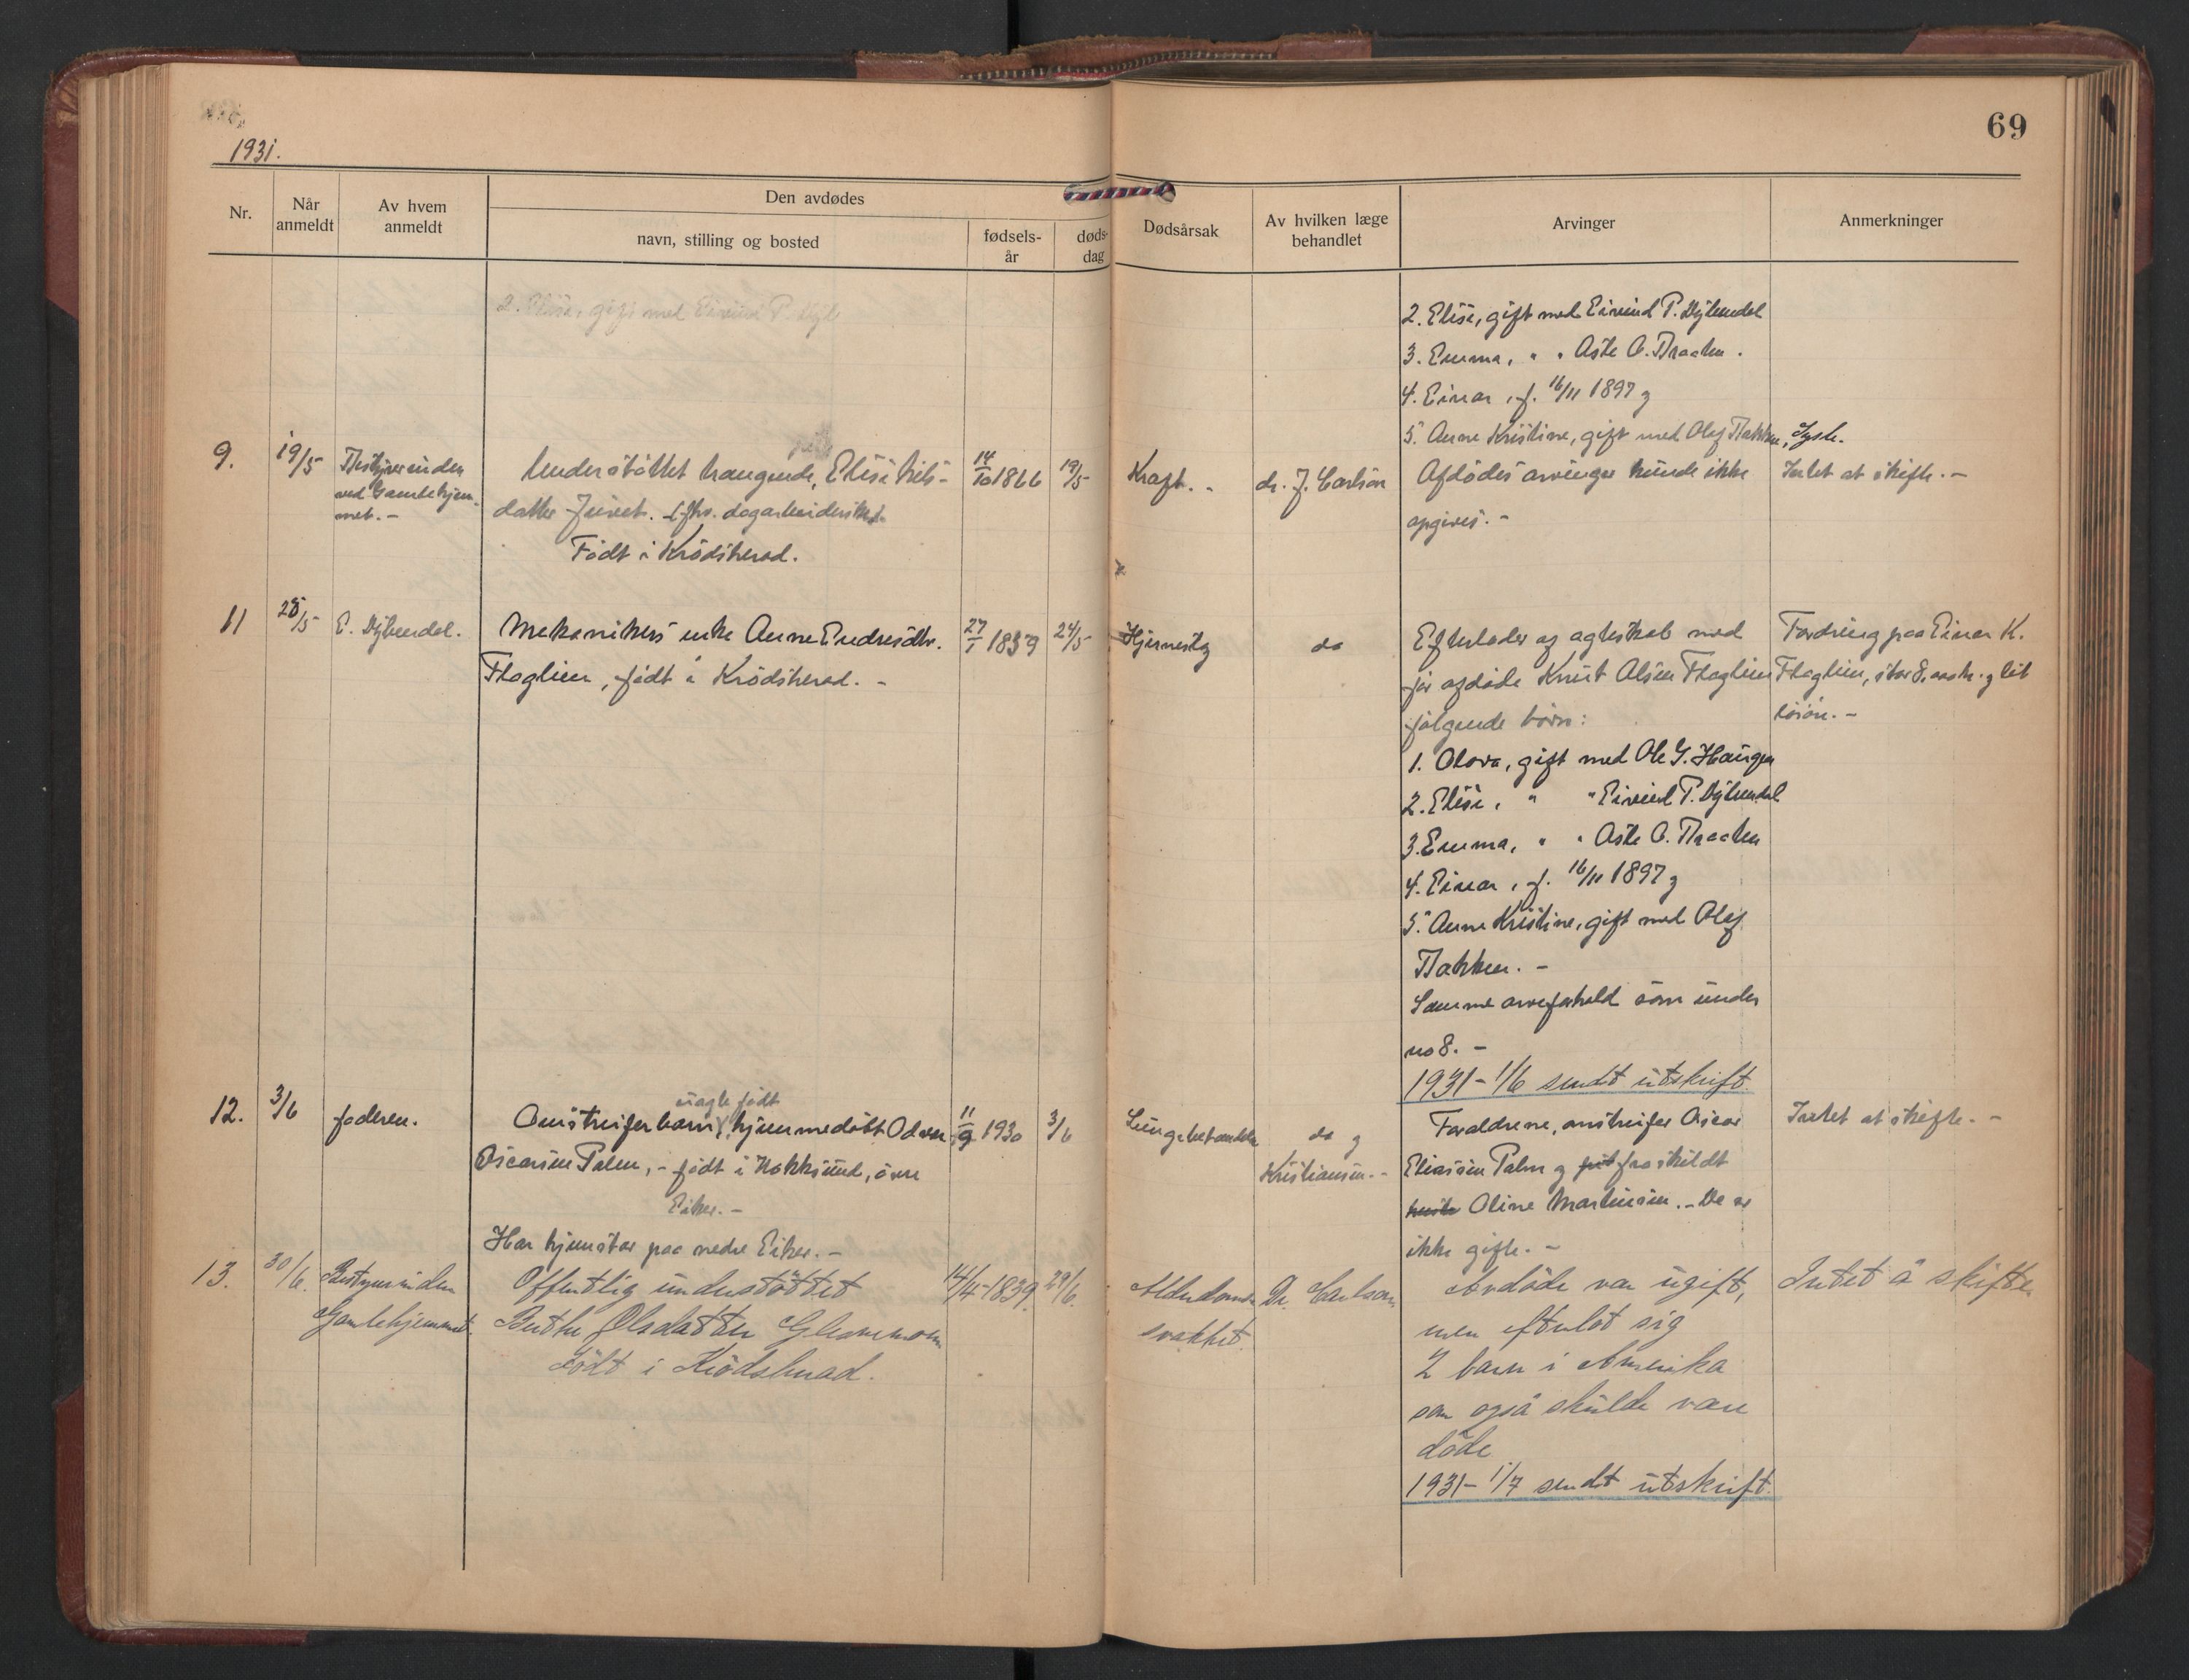 69
1931.
Nr.
Når anmeldt
Av hvem anmeldt
Den avdødes
navn, stilling og bosted
fødsels-år
døds-dag
Dødsårsak
Av hvilken læge behandlet
Arvinger
Anmerkninger
2. Elise, gift med Eivind P. Dyb
2. Elise, gift med Eivind P. Dybendal
3. Emma, " " Aste O. Braaten.
4. Einar, f. 16/11 1897 g
5. Anne Kristine, gift med Olaf Bakken, Sysle.
9.
19/5
Bestyrerinden
ved Gamlehjem-
met. -
Understøttet trangende, Elise Nils-
datter Juvet. fhv. dagarbeiderske.
Født i Krødsherad.
14/10 1866
19/5
Kræft. -
dr. J. Carlson
Afdødes arvinger kunde ikke
opgives. -
Intet at skifte. -
11
28/5
E. Dybendal.
Mekanikers enke Anne Endresdtr.
Flaglien, født i Krødsherad. -
27/1 1839
24/5
Hjerneslag
do
Efterlader og ægteskab med
før afdøde Knut Olsen Flaglien
følgende børn:
1. Olava, gift med Ole G. Haugen
2. Elise, " " Eivind P. Dybendal
3. Emma, " " Aste O. Braaten
4. Einar, f. 16/11 1897 g
5. Anne Kristine, gift med Olaf
Bakken. -
Samme arveforhold som under
no 8. -
1931 - 1/6 sendt utskrift.
Fordring paa Einar K.
Flaglien, stor g lit
løsøre. -
12.
3/6
faderen.
uægte født
Anstreiferbarn, hjemmedøbt Odvar
Oscarsen Palm, - født i Hokksund, øvre
Eiker. -
Har hjemstav paa nedre Eiker. -
11/9 1930
3/6
Lungebetændelse
do g
Kristiansen. -
Forældrene, omstreifer Oscar
Eliassen Palm g fraskildt
Oline Martinsen. - De er
ikke gifte. -
Intet at skifte. -
13.
30/6.
Bestyrerinden
Gamlehjemmet.
Offentlig understøttet
Berthe Olsdatter Glesnemoen
Født i Krødsherad.
14/4 - 1839.
29/6.
Alderdoms-
svakhet.
Dr. Carlson
Avdøde var ugift,
men efterlot sig
2 barn i Amerika
som også skulde være
døde
1931 - 1/7 sendt utskrift.
Intet å skifte.